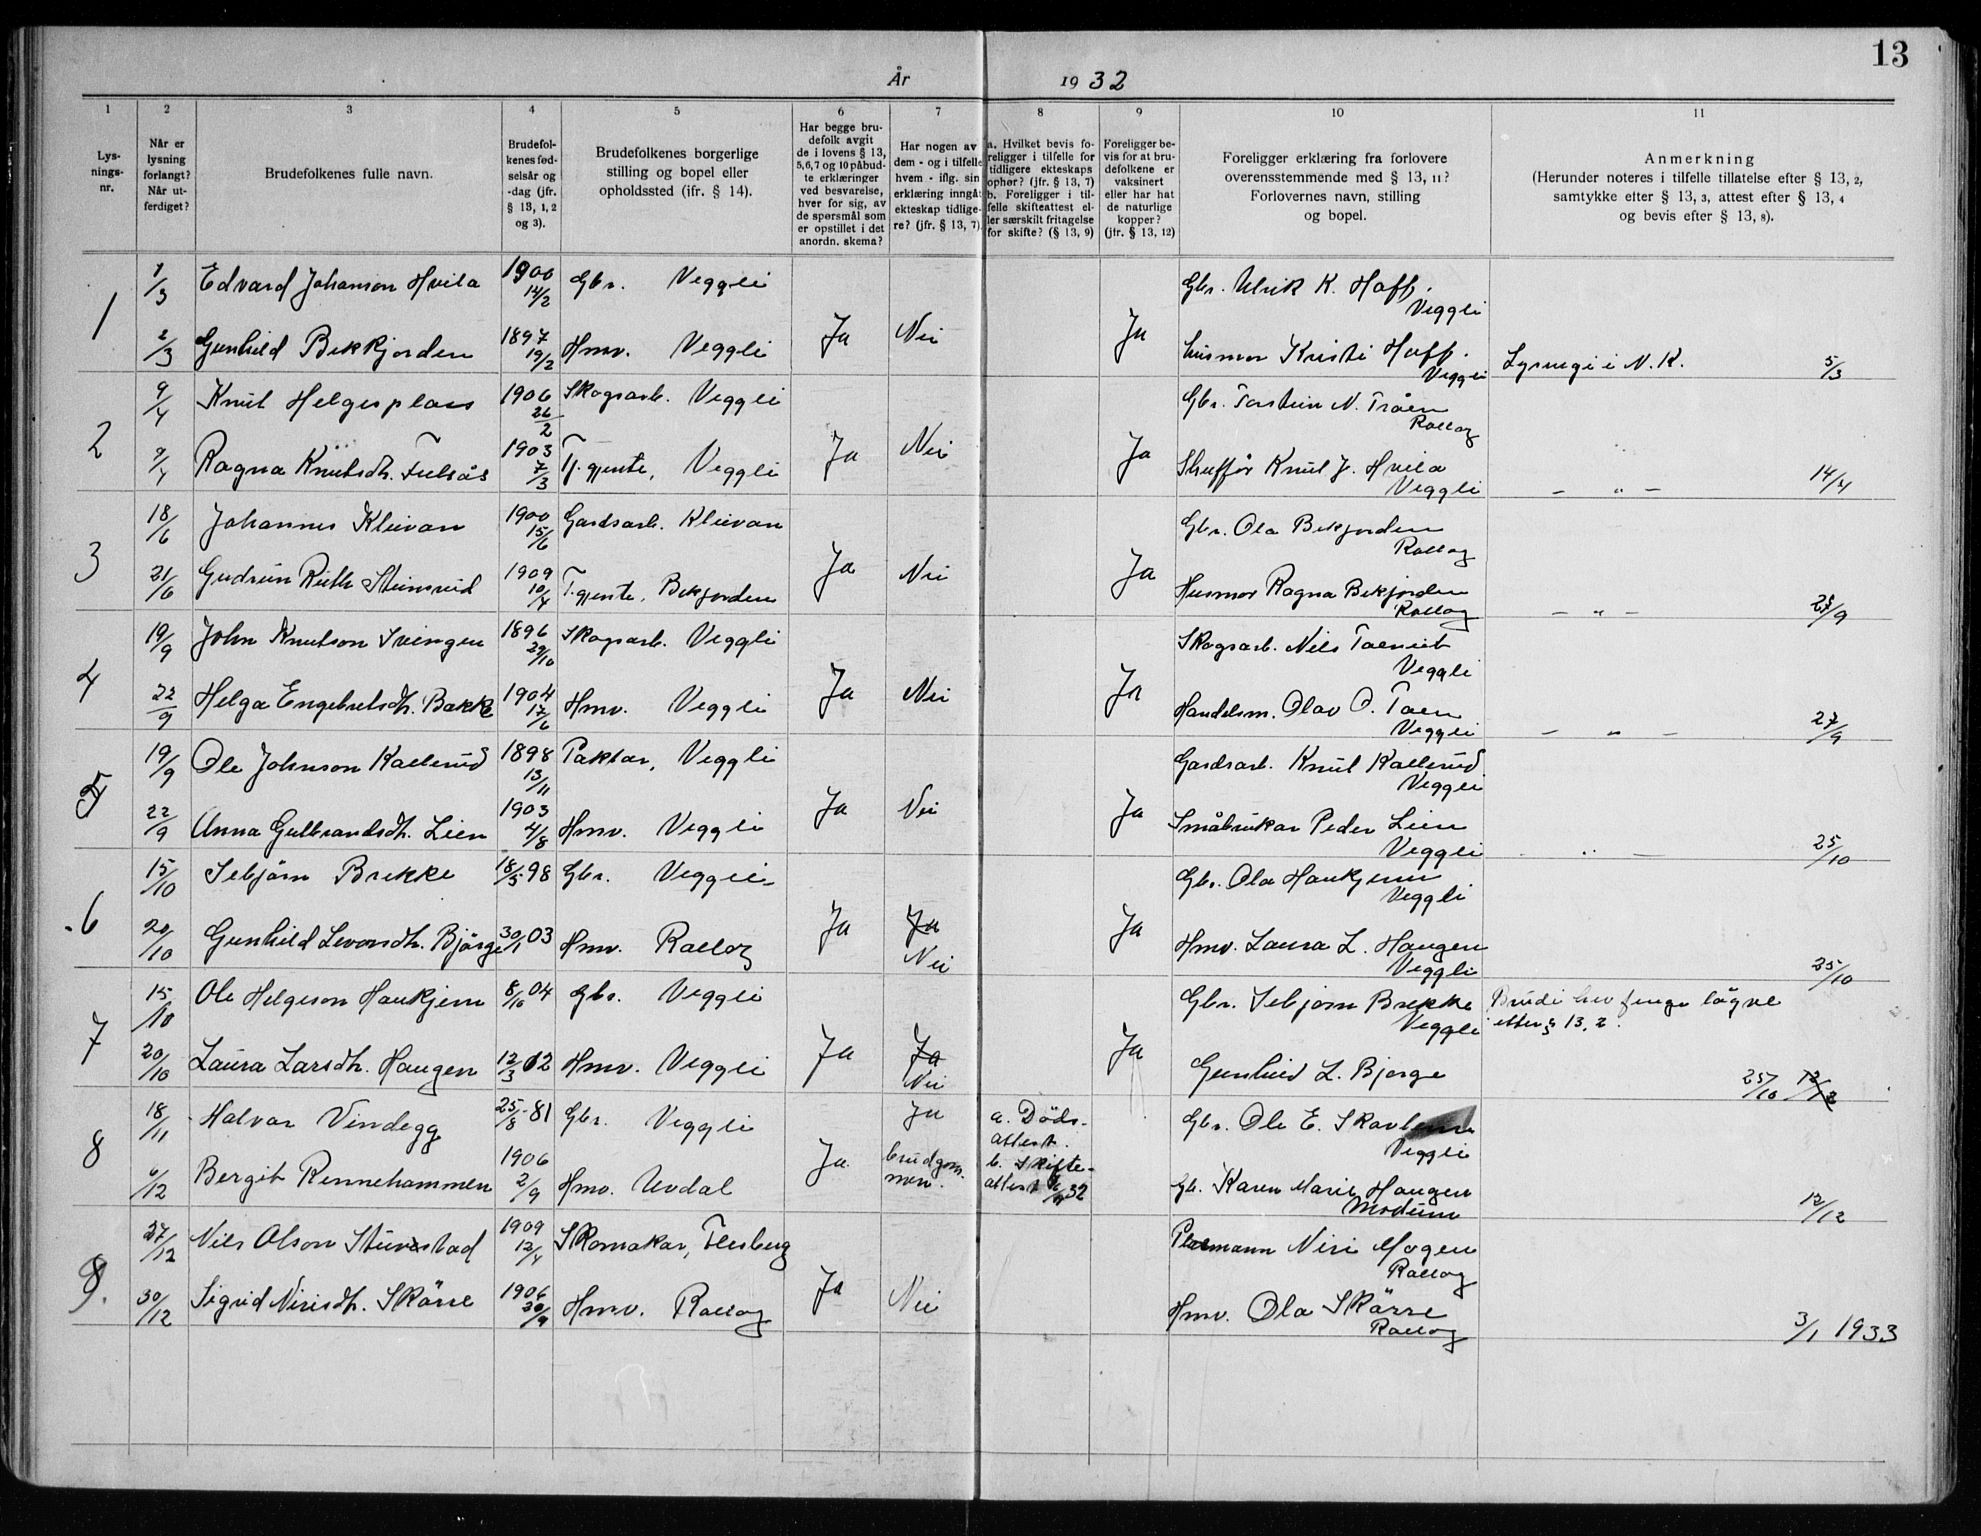 13
År 1932
1 2 3 4 5 6 7 8 9 10 11
Lys-
nings-
nr.
Når er
lysning
forlangt?
Når ut-
ferdiget?
Brudefolkenes fulle navn.
Brudefol-
kenes fød-
selsår og
-dag (jfr.
§ 13, 1, 2
og 3).
Brudefolkenes borgerlige
stilling og bopel eller
opholdssted (jfr. § 14).
Har begge bru-
defolk avgit
de i lovens § 13,
5,6,7 og 10 påbud-
te erklæringer
ved besvarelse,
hver for sig, av
de spørsmål som
er opstillet i det
anordn. skema?
Har nogen av
dem - og i tilfelle
hvem - iflg. sin
erklæring inngåt
ekteskap tidlige-
re? (jfr. § 13, 7)
a. Hvilket bevis fo-
religger i tilfelle for
tidligere ekteskaps
ophør? (jfr. § 13, 7)
b. Foreligger i til-
felle skifteattest el-
ler særskilt fritagelse
for skifte? (§ 13, 9)
Foreligger be-
vis for at bru-
defolkene er
vaksinert
eller har hat
de naturlige
kopper?
(jfr. § 13, 12)
Foreligger erklæring fra forlovere
overensstemmende med § 13, 11?
Forlovernes navn, stilling
og bopel.
Anmerkning
(Herunder noteres i tilfelle tillatelse efter § 13, 2,
samtykke efter § 13, 3, attest efter § 13, 4
og bevis efter § 13, 8).
1 1/3 Edvard Johanson Hvila 1900 14/2 Gbr. Veggli Gbr. Ulrik K. Hoff. Veggli
2/3 Gunhild Bekkjorden 1897 19/2 Hmv. Veggli Ja Nei Ja husmor Kristi Hoff. Veggli Lysingi i N. K. 5/3
2 9/4 Knut Helgesplass 1906 26/2 Skogsarb. Veggli Gbr. Torstein N. Tråen Rollag
9/4 Ragna Knutsdh. Fulsås 1903 7/3 Tj.gjente, Veggli Ja Nei Ja Shuffør Knut J. Hvila Veggli — " — 14/4
3 18/6 Johannes Kleivan 1900 15/6 Gardsarb. Kleivan Gbr. Ola Bekjorden Rollag
21/6 Gudrun Ruth Steinsrud 1909 10/4 T.gjente, Bekjorden Ja Nei Ja Husmor Ragna Bekjorden Rollag — " — /9
4 19/9 John Knutson Svingen 1896 29/10 Skogsarb. Veggli Skogsarb. Nils Veggli
22/9 Helga Engebretsdh. Bakke 1904 17/6 Hmv. Veggli Ja Nei Ja Handelsm. Olav O. Toen Veggli — " — 27/9
5 19/9 Ole Johnson Kallerud 1898 13/11 Paktar, Veggli Gardsarb. Knut Kallerud Veggli
22/9 Anna Gulbrandsdh. Lien 1903 4/8 Hmv. Veggli Ja Nei Ja Småbrukar Peder Lien Veggli " — 25/10
6 15/10 Sebjörn Brekke 18/5 98 Gbr. Veggli Gbr. Ola Haukjem Veggli
20/10 Gunhild Levorsdh. Björge 30/1 03 Hmv. Rollag Ja Ja Nei Ja Hmv. Laura L. Haugen Veggli 25/10
7 15/10 Ole Helgeson Haukjem 8/10 04 Gbr. Veggli Gbr. Sebjörn Brekke Veggli Brudi hev fenge løyve
etter § 13, 2.
20/10 Laura Larsdh. Haugen 12/3 12 Hmv. Veggli Ja Ja Nei Ja Gunhild L. Bjørge 25/10 12/12
8 18/11 Halvar Vindegg 25/8 - 81 Gbr. Veggli Ja a. Døds-
attest. Gbr. Ole E. Veggli
6/12 Bergit Rennehammen 1906 2/9 Hmv. Uvdal Ja brudgom-
men. b. Skifte-
attest 32 Gb. Karen Marie Haugen Modum 12/12
9. 27/12 Nils Olson Stuvestad 1909 12/4 Skomakar, Flesberg Niri Mogen Rollag
30/12 Sigrid Nirisdh. Skårre 1906 30/9 Hmv. Rollag Ja Nei Hmv. Ola Skårre Rollag 3/1 1933